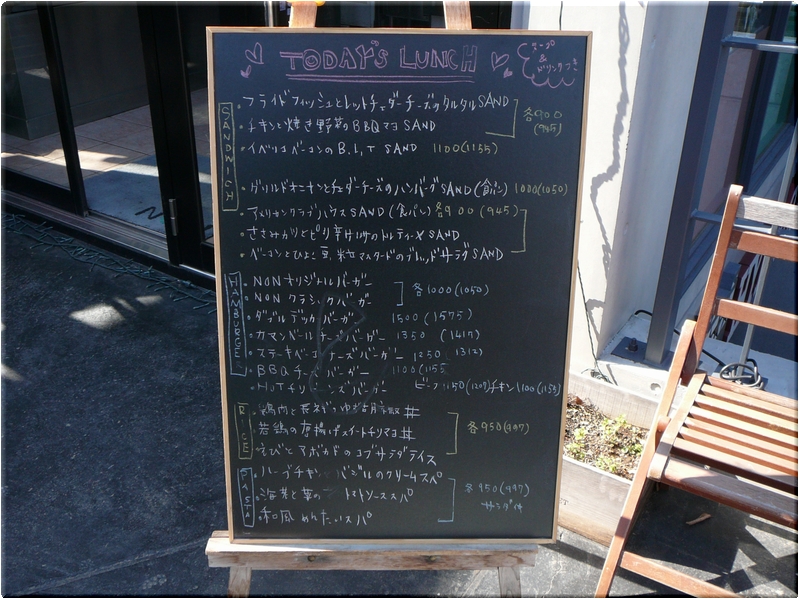 TODAY'S LUNCH
スープ
&
ドリンクつき
SANDWICH
・フライドフィッシュとレッドチェダーチーズのタルタルSAND
・チキンと焼き野菜のBBQマヨSAND
各900
(945)
・イベリコベーコンのB.L.T SAND 1100(1155)
・グリルドオニオンとチェダーチーズのハンバーグSAND(食パン) 1000(1050)
・アメリカンクラブハウスSAND(食パン) 各900(945)
・ささみカツとピリ辛 SAND
・ベーコンとひよこ豆、粒マスタードの サラダSAND
HAMBURGE
・NONオリジナルバーガー
・NONクラシックバーガー
各1000(1050)
・ダブルデッカーバーガー 1500(1575)
・カマンベールチーズバーガー 1350(1417)
・ステーキベーコンチーズバーガー 1250(1312)
・BBQチーズバーガー 1100(1155
・HOTチリビーンズバーガー ビーフ1150(1207)チキン1100(1155)
RICE
・鶏肉と長ネギのゆず胡椒 丼
・若鶏の唐揚げスイートチリマヨ丼
・えびとアボカドのコブサラダライス
各950(997)
PASTA
・ハーブチキン バジルのクリームスパ
・海老と トマトソーススパ
・和風めんたいスパ
各950(997)
サラダ付